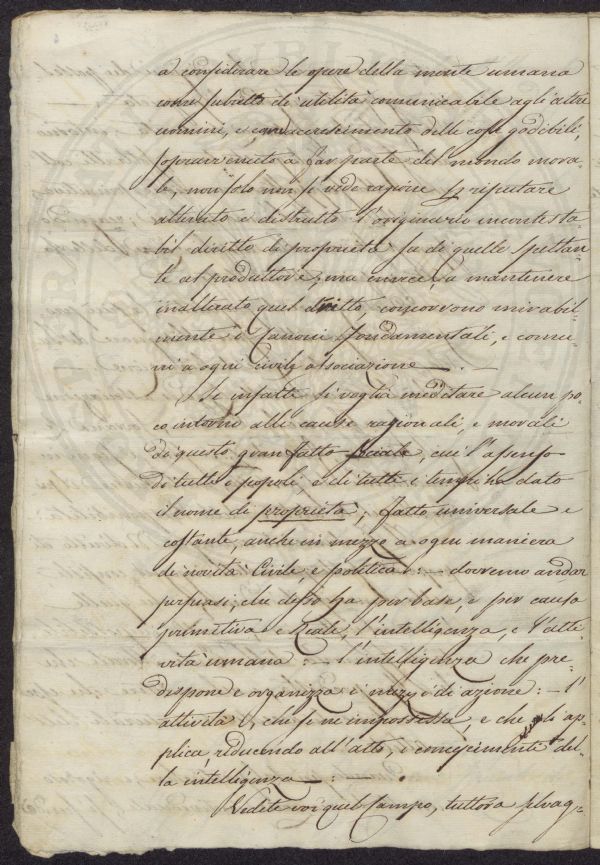 a considerare le opere della mente umana
come subietto di utilità comunicabile agli altri
uomini, e com'accrescimento delle cose godibili,
sopravvenuto a far parte del mondo mora-
le, non solo non si vede ragione per riputare
alterato e distrutto l'originario incontesta-
bil diritto di proprietà su di quelle spettan-
te al produttore, ma invece a mantenere
inalterato quel dritto, concorrono mirabil-
mente i Canoni fondamentali, e comu-
ni a ogni civile associazione.
Se infatti si voglia meditare alcun po-
co intorno alle cause razionali, e morali
di questo gran fatto sociale, cui l'assenso
di tutti i popoli, e di tutti i tempi ha dato
il nome di proprietà; fatto universale e
costante, anche in mezzo a ogni maniera
di novità Civile, e politica: — dovremo andar
persuasi, che desso ha per base, e per causa
primitiva e Reale, l'intelligenza, e l'atti-
vità umana: — l'intelligenza che pre-
dispone e organizza i mezzi di azione: — l'
attività, che se ne impossessa, e che gli ap-
plica, riducendo all'atto, i concepimenti del-
la intelligenza — : — .
Vedete voi quel Campo, tuttora selvag-